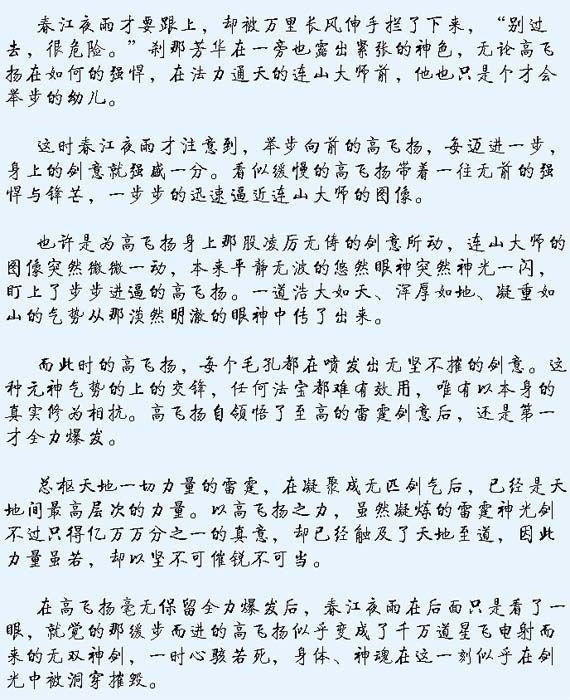 春江夜雨才要跟上，却被万里长风伸手拦了下来，“别过
去，很危险。”刹那芳华在一旁也露出紧张的神色，无论高飞
扬在如何的强悍，在法力通天的连山大师前，他也只是个才会
举步的幼儿。
这时春江夜雨才注意到，举步向前的高飞扬，每迈进一步，
身上的剑意就强盛一分。看似缓慢的高飞扬带着一往无前的强
悍与锋芒，一步步的迅速逼近连山大师的图像。
也许是为高飞扬身上那股凌厉无俦的剑意所动，连山大师的
图像突然微微一动，本来平静无波的悠然眼神突然神光一闪，
盯上了步步进逼的高飞扬。一道浩大如天、浑厚如地、凝重如
山的气势从那淡然明澈的眼神中传了出来。
而此时的高飞扬，每个毛孔都在喷发出无坚不摧的剑意。这
种元神气势的上的交锋，任何法宝都难有效用，唯有以本身的
真实修为相抗。高飞扬自领悟了至高的雷霆剑意后，还是第一
才全力爆发。
总枢天地一切力量的雷霆，在凝聚成无匹剑气后，已经是天
地间最高层次的力量。以高飞扬之力，虽然凝炼的雷霆神光剑
不过只得亿万万分之一的真意，却已经触及了天地至道，因此
力量虽若，却以坚不可催锐不可当。
在高飞扬毫无保留全力爆发后，春江夜雨在后面只是看了一
眼，就觉的那缓步而进的高飞扬似乎变成了千万道星飞电射而
来的无双神剑，一时心骇若死，身体、神魂在这一刻似乎在剑
光中被洞穿摧毁。